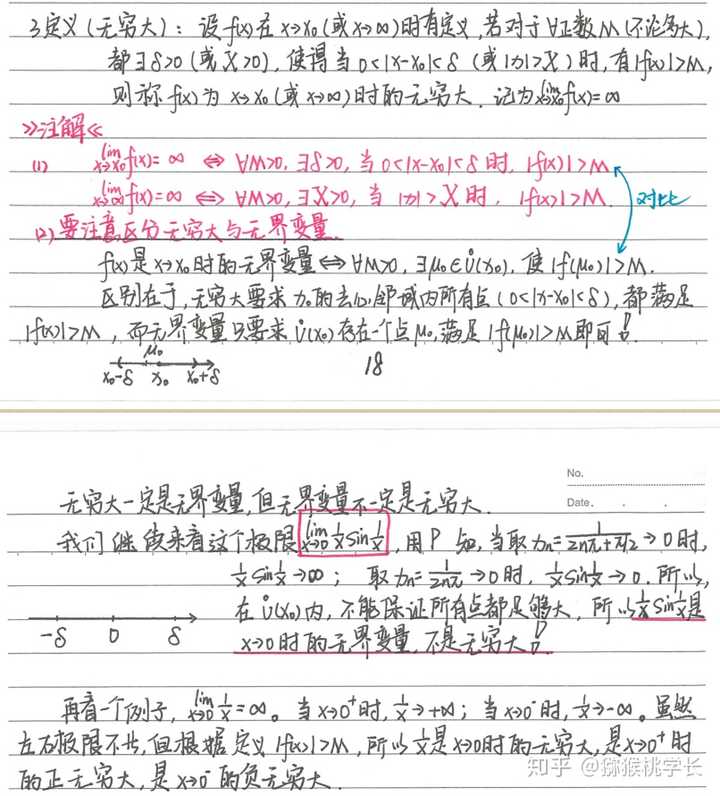 3.定义(无穷大): 设f(x)在x→x₀(或x→∞)时有定义,若对于∀正数M(不论多大),
都∃δ>0(或X>0), 使得当0<|x-x₀|<δ (或|x|>X)时,有|f(x)|>M,
则称f(x)为x→x₀(或x→∞)时的无穷大. 记为lim x→x₀ f(x)=∞
≫注解≪
(1) lim x→x₀ f(x)=∞ ⇔ ∀M>0, ∃δ>0, 当0<|x-x₀|<δ时, |f(x)|>M
lim x→∞ f(x)=∞ ⇔ ∀M>0, ∃X>0, 当|x|>X时, |f(x)|>M. 对比
(2) 要注意区分无穷大与无界变量.
f(x)是x→x₀时的无界变量⇔∀M>0, ∃μ₀∈Ů(x₀), 使|f(μ₀)|>M.
区别在于,无穷大要求x₀的去心邻域内所有点(0<|x-x₀|<δ),都满足
|f(x)|>M, 而无界变量只要求Ů(x₀)存在一个点μ₀,满足|f(μ₀)|>M即可!
μ₀
x₀-δ x₀ x₀+δ
18
No.
Date.
无穷大一定是无界变量,但无界变量不一定是无穷大.
我们继续来看这个极限lim x→0 1/x sin 1/x, 用P 知,当取xn=1/(2nπ+π/2)→0时,
1/x sin 1/x→∞; 取xn=1/(2nπ)→0时, 1/x sin 1/x→0. 所以,
在Ů(x₀)内, 不能保证所有点都足够大, 所以1/x sin 1/x是
-δ 0 δ
x→0时的无界变量,不是无穷大!
再看一个例子, lim x→0 1/x=∞。当x→0⁺时, 1/x→+∞; 当x→0⁻时, 1/x→-∞。虽然
左右极限不等,但根据定义|f(x)|>M, 所以1/x是x→0时的无穷大,是x→0⁺时
的正无穷大,是x→0⁻的负无穷大.
知乎 @猕猴桃学长